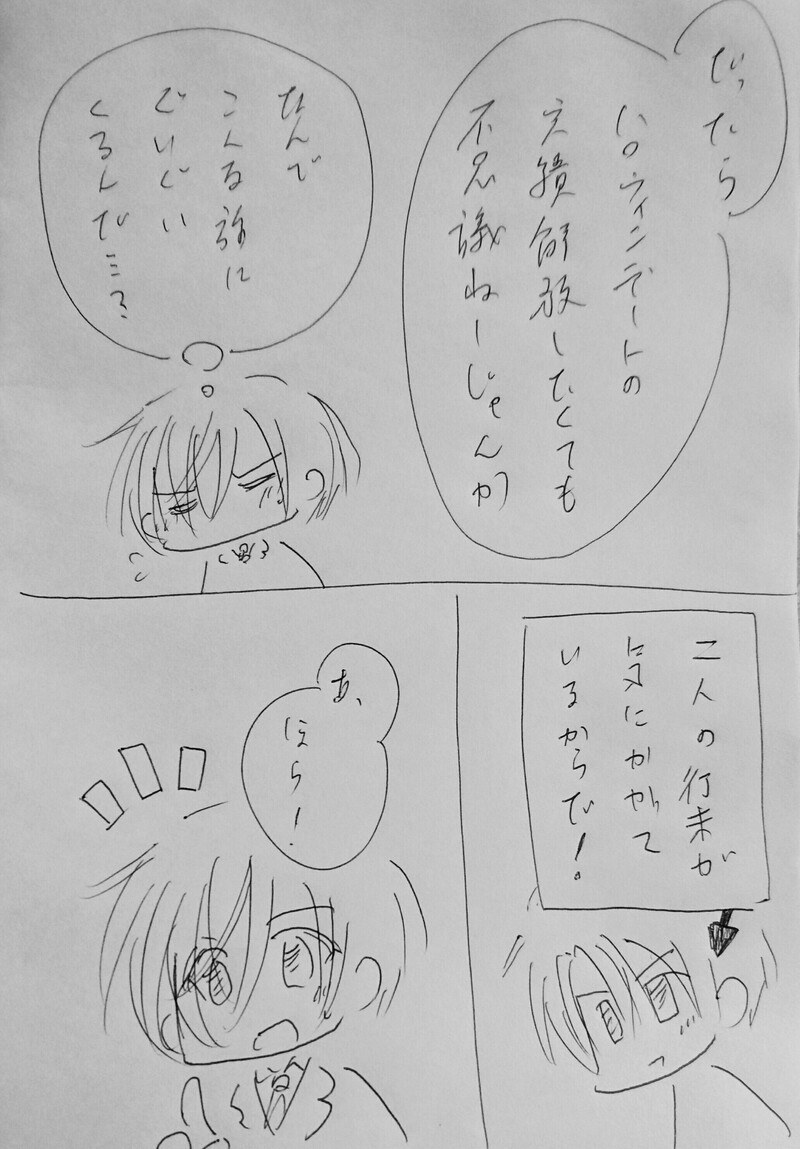 だったら
ハロウィンデートの
実績解放したくても
不思議ねーじゃんか
なんで
こんな話に
ぐいぐい
くるんだ…？
二人の行末が
気にかかって
いるからだ！
あ、
ほら！